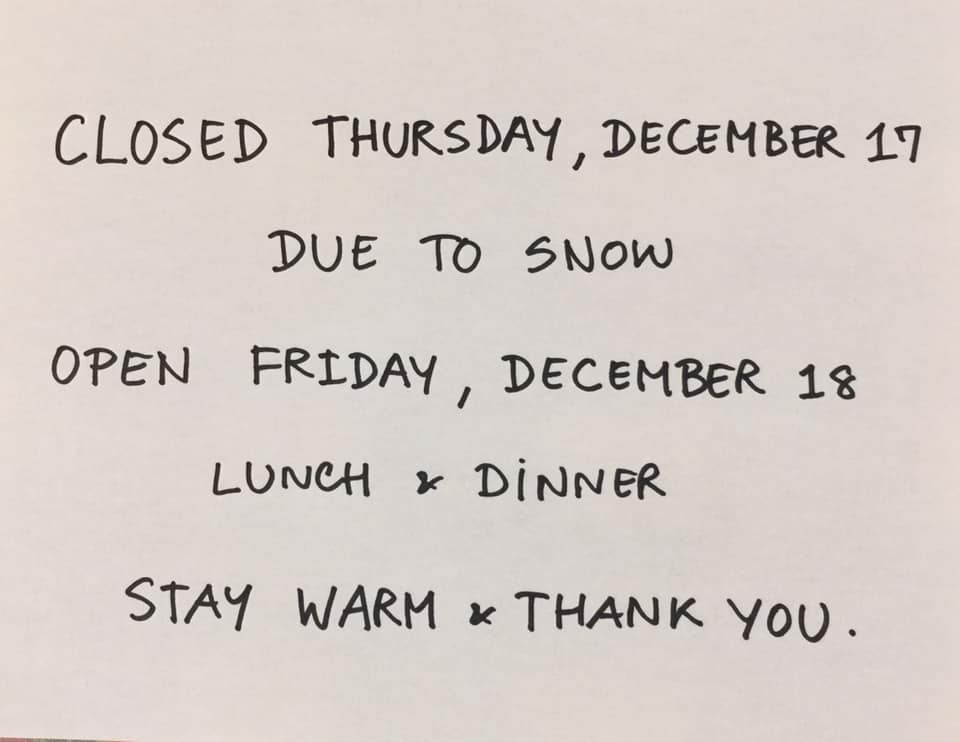 CLOSED THURSDAY, DECEMBER 17
DUE TO SNOW
OPEN FRIDAY, DECEMBER 18
LUNCH & DINNER
STAY WARM & THANK YOU.